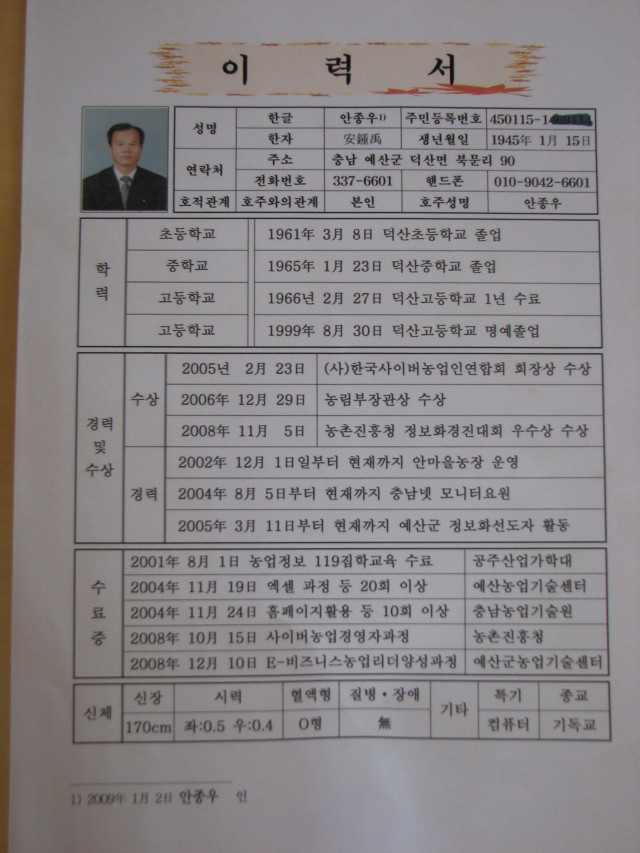 이 력 서
성명 한글 안종우1) 주민등록번호 450115-1
한자 安鍾禹 생년월일 1945年 1月 15日
연락처 주소 충남 예산군 덕산면 북문리 90
전화번호 337-6601 핸드폰 010-9042-6601
호적관계 호주와의관계 본인 호주성명 안종우
학력 초등학교 1961年 3月 8日 덕산초등학교 졸업
중학교 1965年 1月 23日 덕산중학교 졸업
고등학교 1966년 2月 27日 덕산고등학교 1년 수료
고등학교 1999年 8月 30日 덕산고등학교 명예졸업
경력 및 수상 수상 2005년 2月 23日 (사)한국사이버농업인연합회 회장상 수상
2006年 12月 29日 농림부장관상 수상
2008年 11月 5日 농촌진흥청 정보화경진대회 우수상 수상
경력 2002年 12月 1日일부터 현재까지 안마을농장 운영
2004年 8月 5日부터 현재까지 충남넷 모니터요원
2005年 3月 11日부터 현재까지 예산군 정보화선도자 활동
수료증 2001年 8月 1日 농업정보 119집학교육 수료 공주산업가학대
2004年 11月 19日 엑셀 과정 등 20회 이상 예산농업기술센터
2004年 11月 24日 홈페이지활용 등 10회 이상 충남농업기술원
2008年 10月 15日 사이버농업경영자과정 농촌진흥청
2008年 12月 10日 E-비즈니스농업리더양성과정 예산군농업기술센터
신체 신장 시력 혈액형 질병·장애 기타 특기 종교
170cm 좌:0.5 우:0.4 O형 無 컴퓨터 기독교
1) 2009年 1月 2日 안종우 인